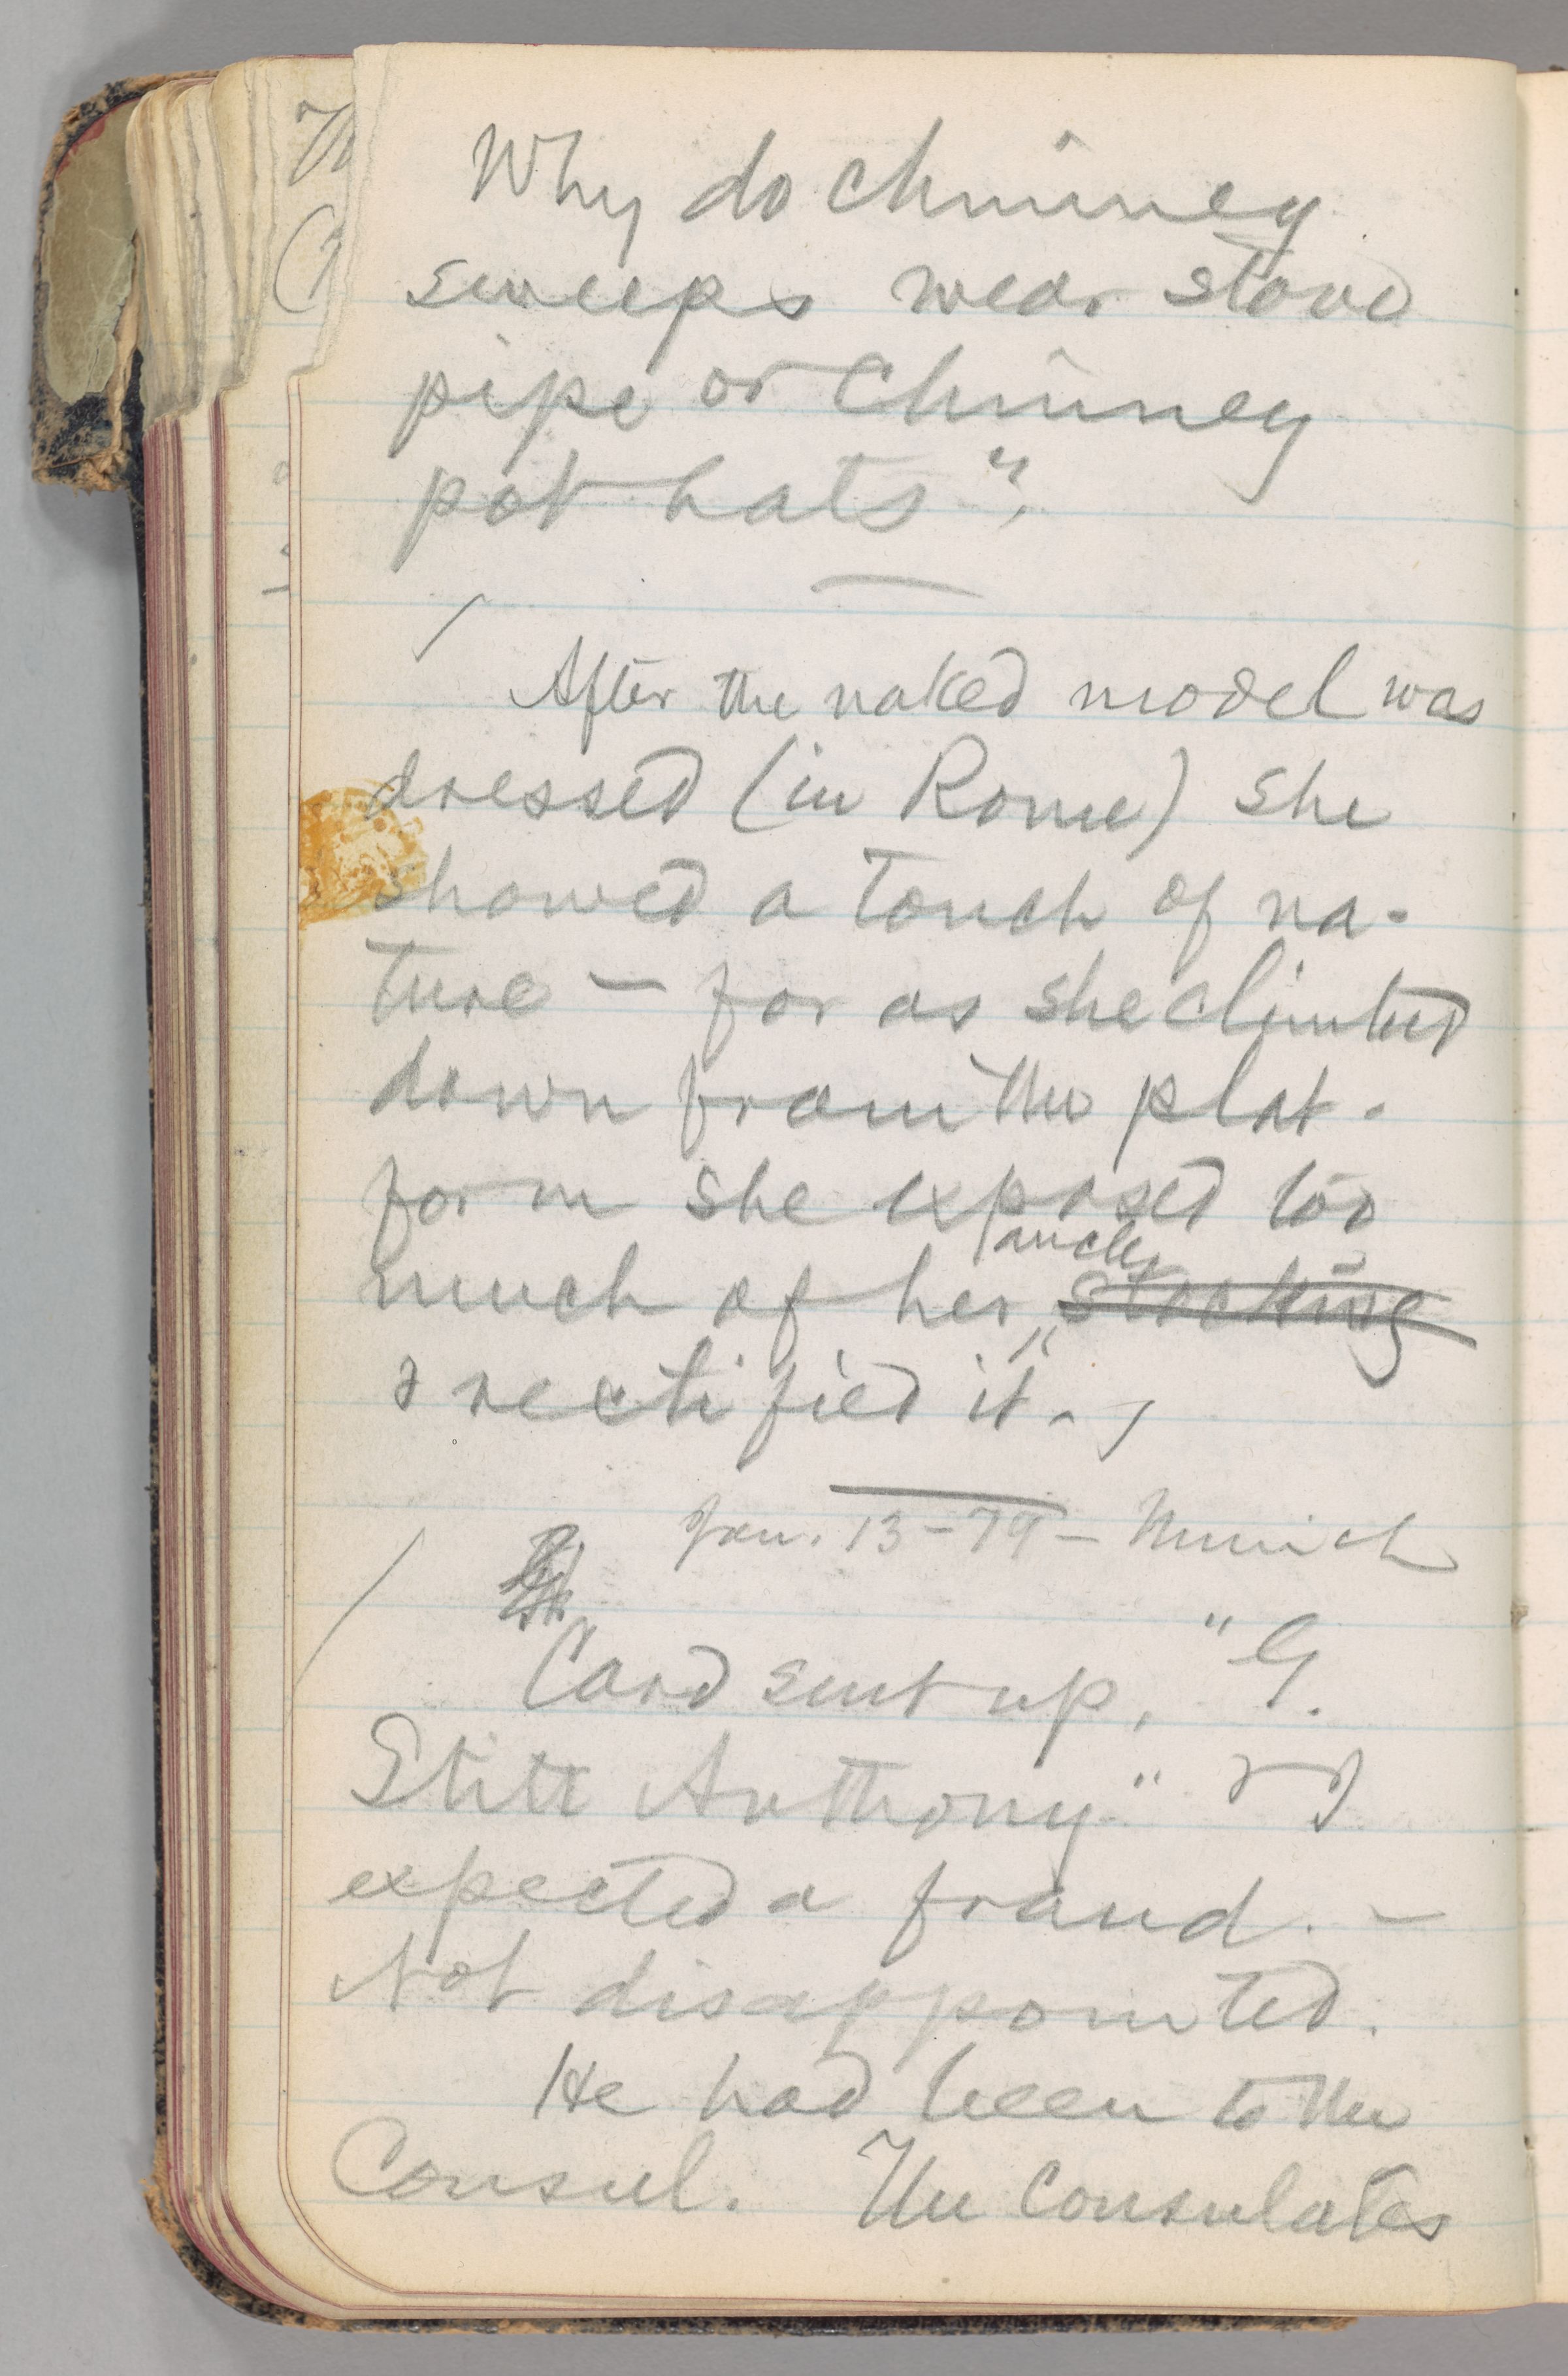 Why do chimney
sweeps wear stove
pipe or chimney
pot hats"?
After the naked model was
dressed (in Rome) she
showed a touch of na-
ture — for as she climbed
down from the plat-
form she exposed too
much of her ancle stocking
& rectified it.
Jan. 13-79 — Munich
Card sent up, "G.
Stitt Anthony" & I
expected a fraud. —
Not disappointed.
He had been to the
Consul. The Consulates